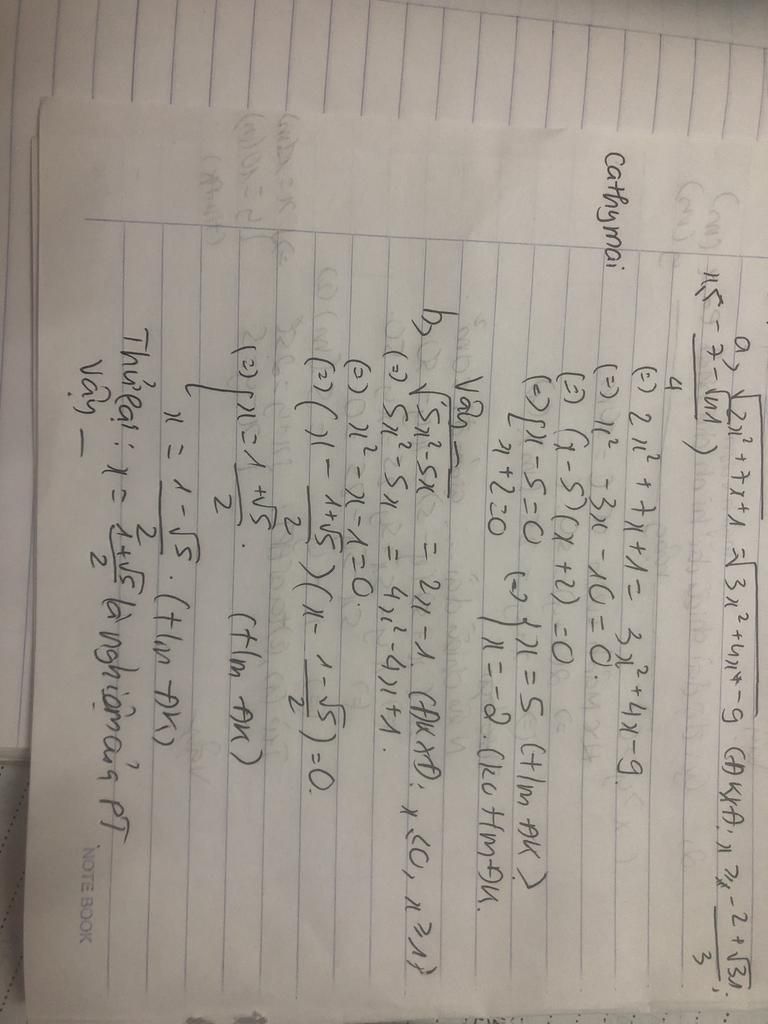 a) √2x²+7x+1 = √3x²+4x-9 (ĐKXĐ: x ≥ -2+√31/3;
x ≤ -7-√41/4)
(=) 2x²+7x+1 = 3x²+4x-9
cathymai
(=) x²-3x-10=0.
(=) (x-5)(x+2)=0
(=) [x-5=0 (=) {x=5 (t/m ĐK)
x+2=0 x=-2. (ko t/m ĐK.
Vậy _
b, √5x²-5x = 2x-1 (ĐKXĐ: x≤0, x≥1)
(=) 5x²-5x = 4x²-4x+1.
(=) x²-x-1=0.
(=) (x - 1+√5/2)(x - 1-√5/2)=0.
(=) [x = 1+√5/2. (t/m ĐK)
x = 1-√5/2. (t/m ĐK)
Thử lại: x = 1+√5/2 là nghiệm của PT
Vậy _
NOTE BOOK